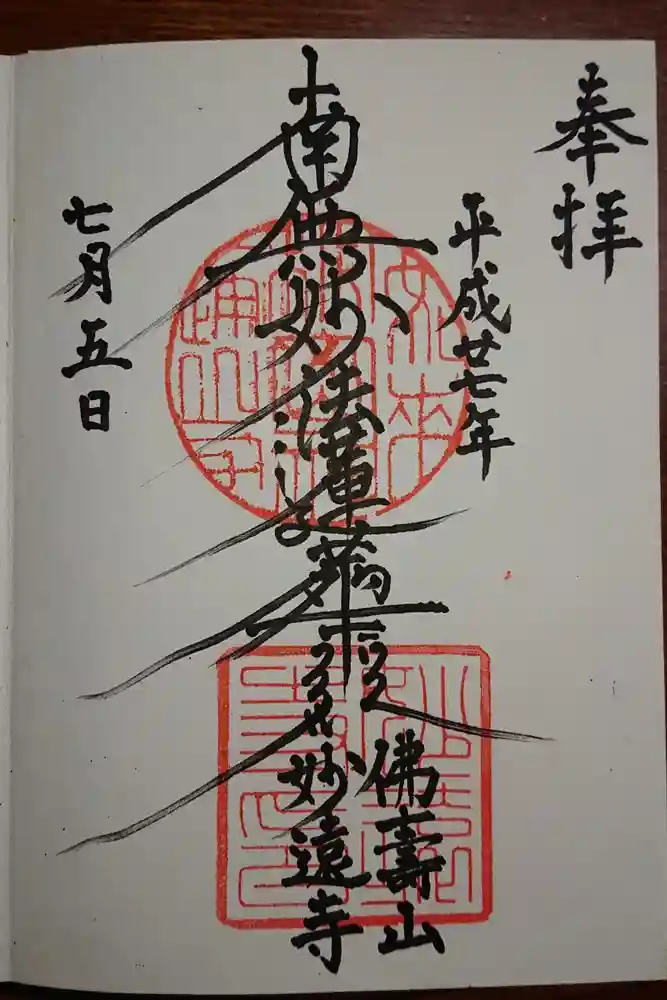 奉拝
平成廿七年
南無妙法蓮華経
佛壽山
妙遠寺
七月五日